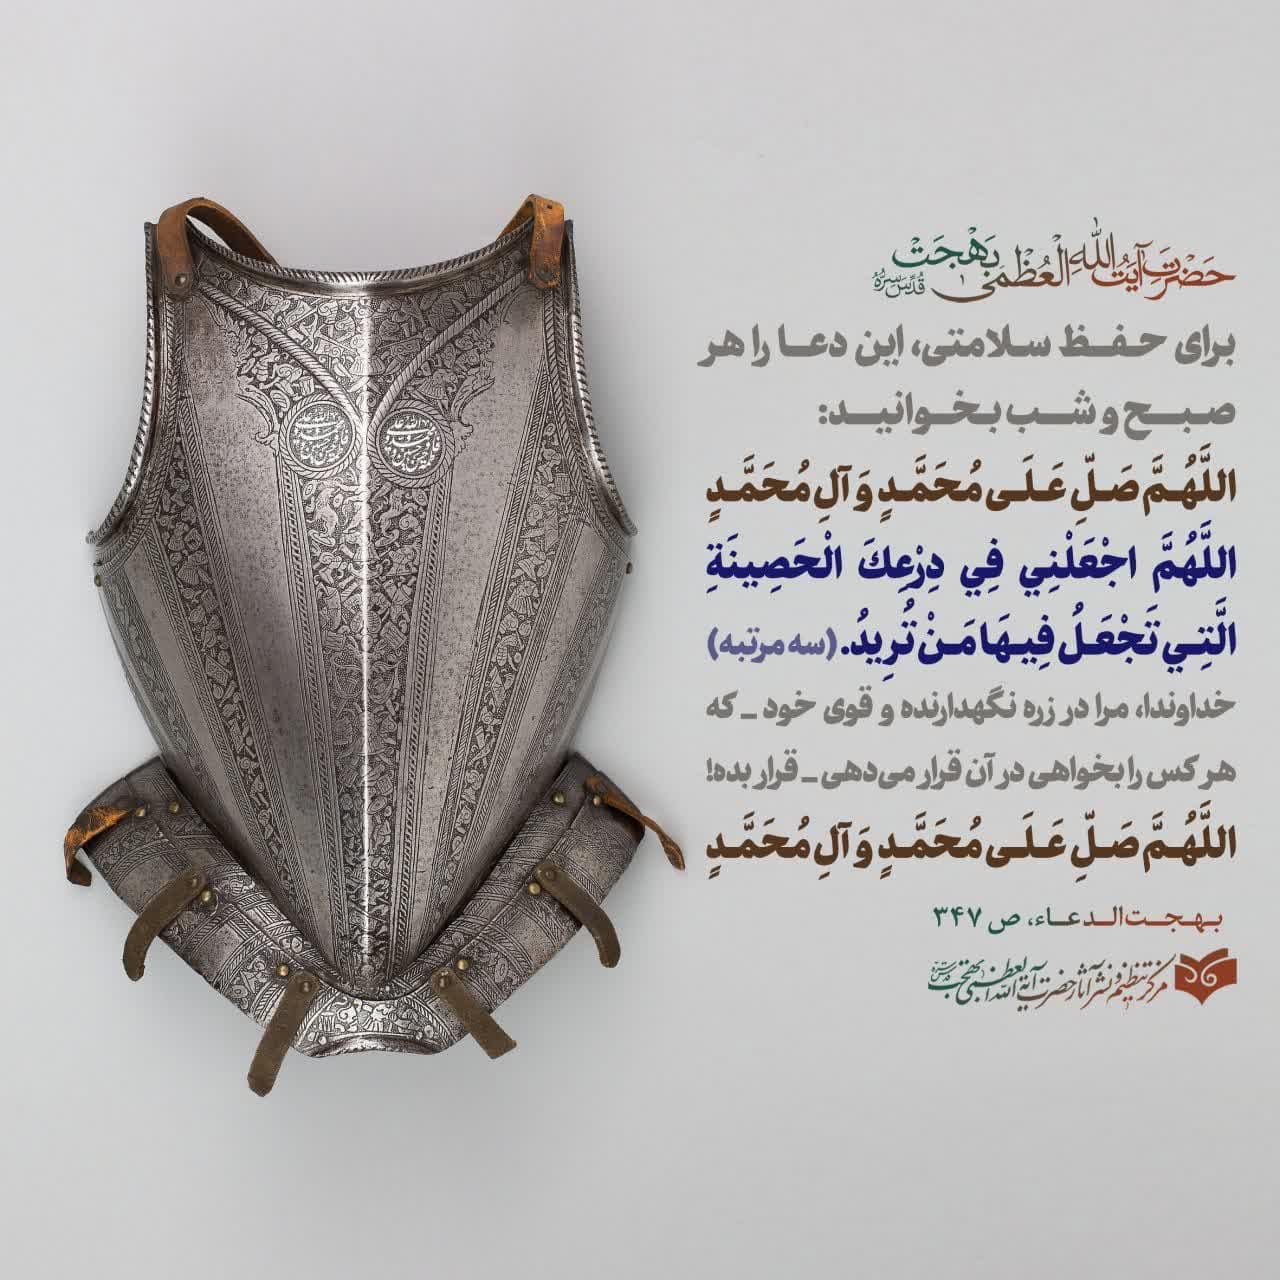 حَضْرَتِ آیَتُ اللهِ الْعُظْمیٰ بَهْجَتْ
قُدِّسَ سِرُّهُ
برای حفظ سلامتی، این دعا را هر
صبح و شب بخوانید:
اللَّهُمَّ صَلِّ عَلَی مُحَمَّدٍ وَ آلِ مُحَمَّدٍ
اللَّهُمَّ اجْعَلْنِي فِي دِرْعِكَ الْحَصِينَةِ
الَّتِي تَجْعَلُ فِيهَا مَنْ تُرِيدُ. (سه مرتبه)
خداوندا، مرا در زره نگهدارنده و قوی خود ـ که
هر کس را بخواهی در آن قرار می‌دهی ـ قرار بده!
اللَّهُمَّ صَلِّ عَلَی مُحَمَّدٍ وَ آلِ مُحَمَّدٍ
بهجت‌الدعاء، ص ۳۴۷
مرکز تنظیم و نشر آثار حضرت آیة الله العظمی بهجت